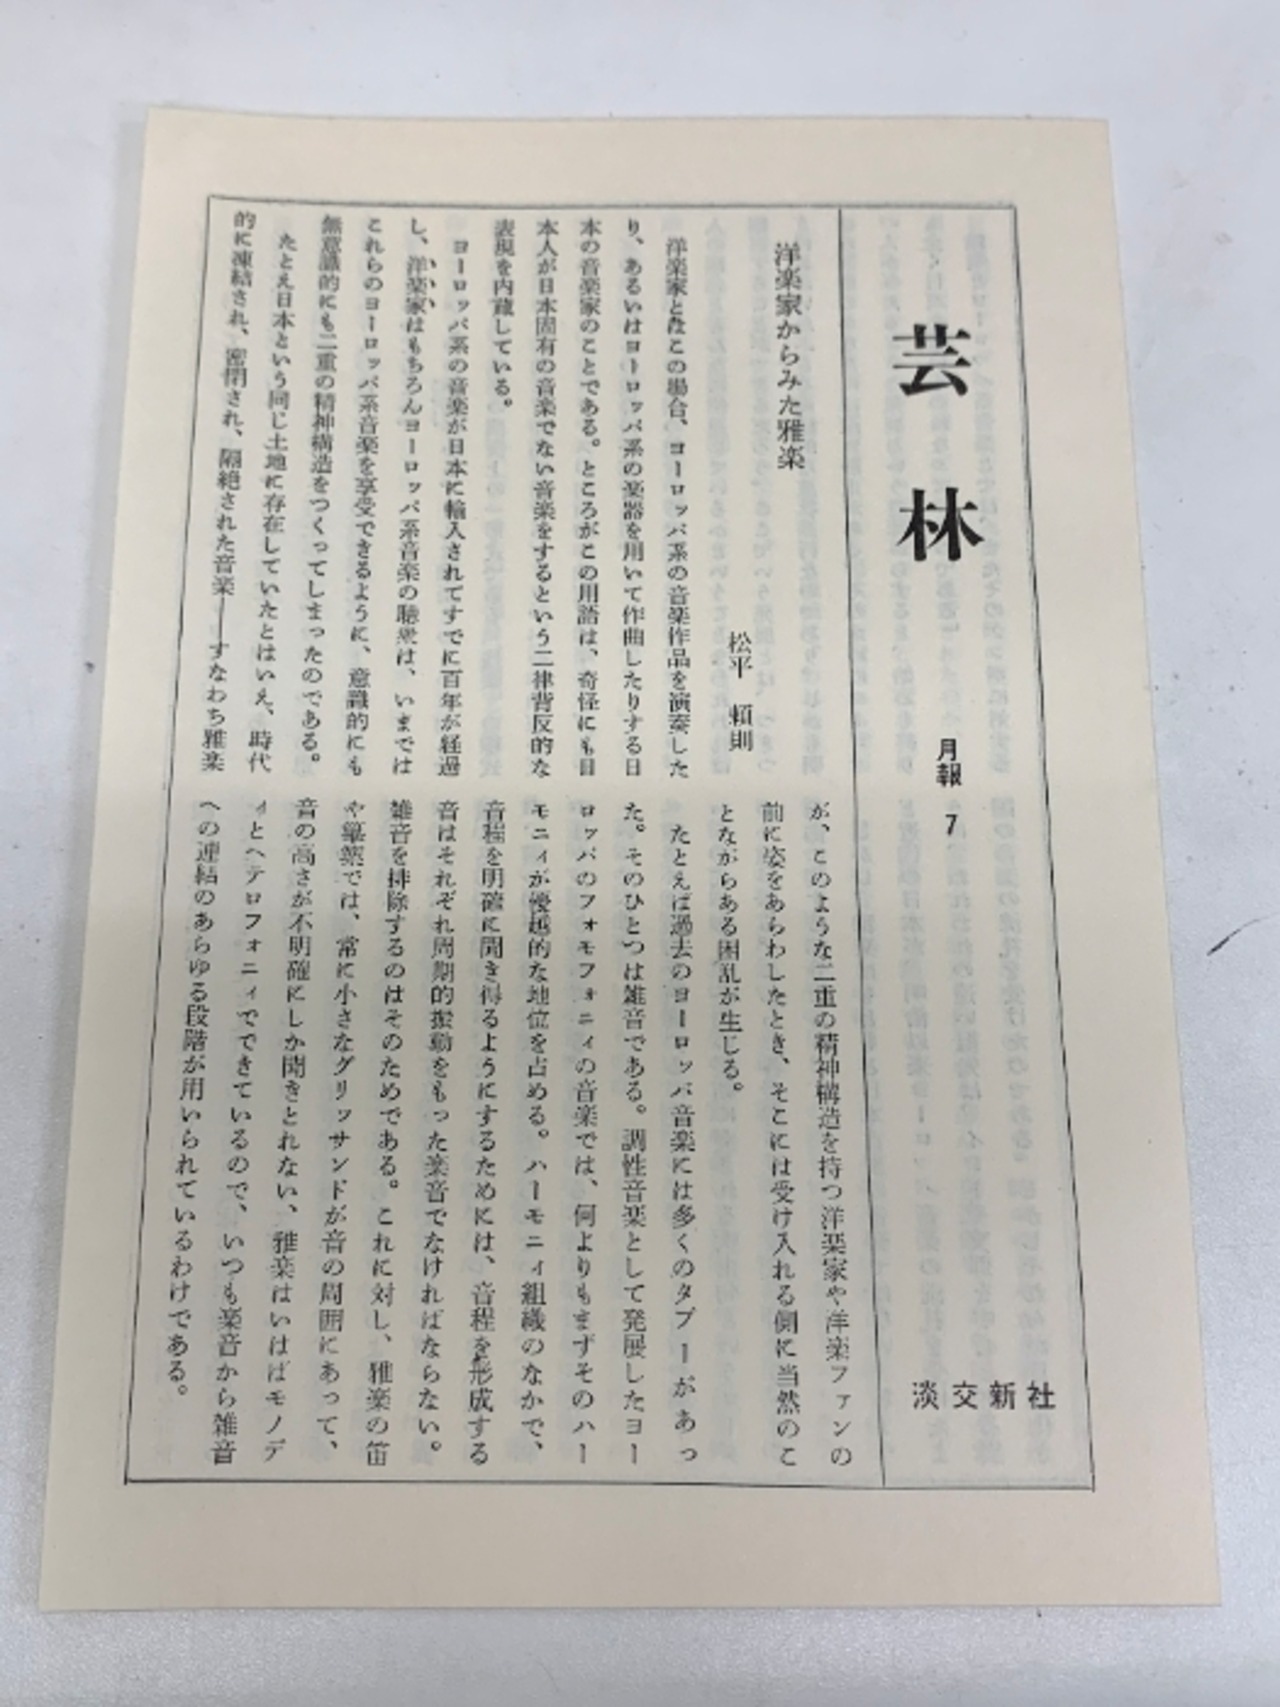 芸林
月報 7
淡交新社
洋楽家からみた雅楽
松平 頼則
洋楽家とはこの場合、ヨーロッパ系の音楽作品を演奏した
り、あるいはヨーロッパ系の楽器を用いて作曲したりする日
本の音楽家のことである。ところがこの用語は、奇怪にも日
本人が日本固有の音楽でない音楽をするという二律背反的な
表現を内蔵している。
ヨーロッパ系の音楽が日本に輸入されてすでに百年が経過
し、洋楽家はもちろんヨーロッパ系音楽の聴衆は、いまでは
これらのヨーロッパ系音楽を享受できるように、意識的にも
無意識的にも二重の精神構造をつくってしまったのである。
たとえ日本という同じ土地に存在していたとはいえ、時代
的に凍結され、密閉され、隔絶された音楽――すなわち雅楽
が、このような二重の精神構造を持つ洋楽家や洋楽ファンの
前に姿をあらわしたとき、そこには受け入れる側に当然のこ
とながらある困乱が生じる。
たとえば過去のヨーロッパ音楽には多くのタブーがあっ
た。そのひとつは雑音である。調性音楽として発展したヨー
ロッパのフォモフォニィの音楽では、何よりもまずそのハー
モニィが優越的な地位を占める。ハーモニィ組織のなかで、
音程を明確に聞き得るようにするためには、音程を形成する
音はそれぞれ周期的振動をもった楽音でなければならない。
雑音を排除するのはそのためである。これに対し、雅楽の笛
や篳篥では、常に小さなグリッサンドが音の周囲にあって、
音の高さが不明確にしか聞きとれない、雅楽はいはばモノデ
ィとヘテロフォニィでできているので、いつも楽音から雑音
への連結のあらゆる段階が用いられているわけである。